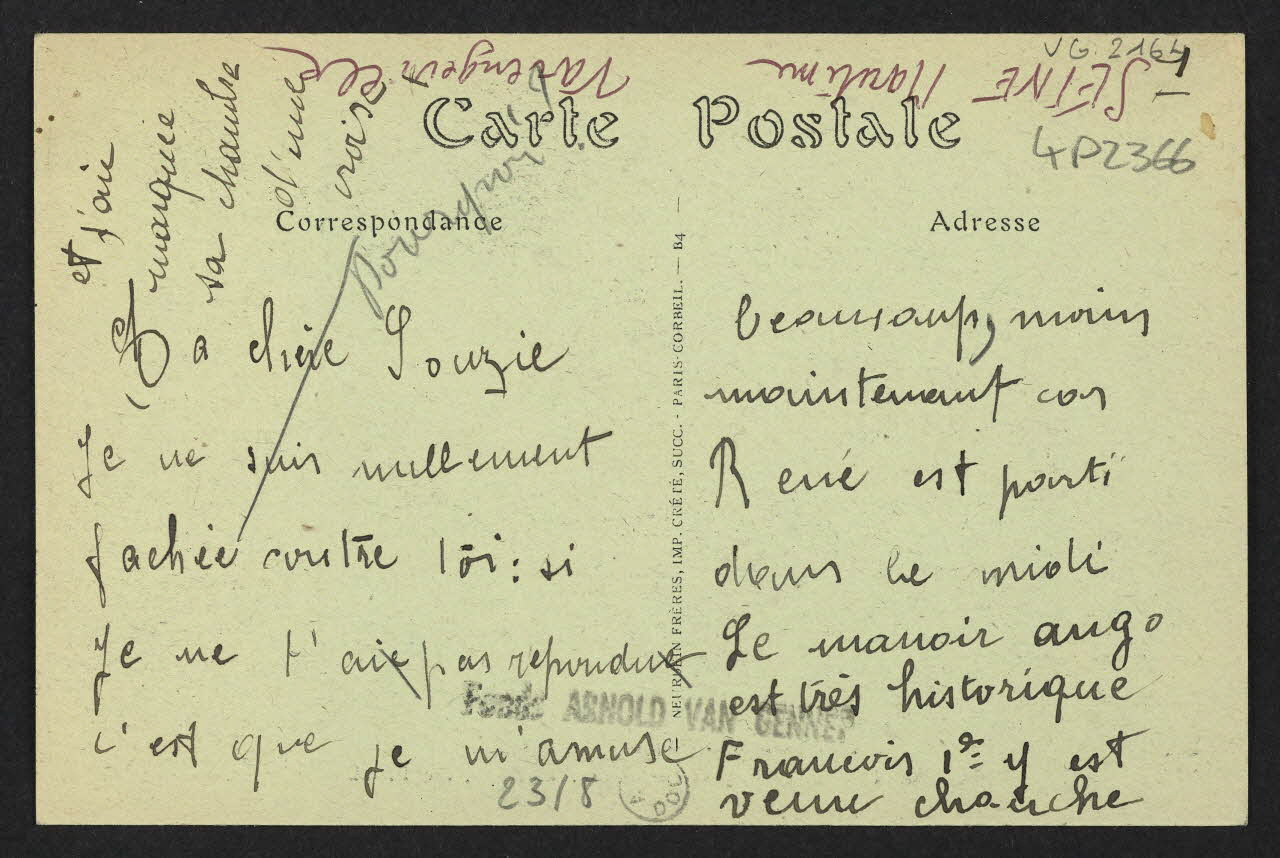 VG. 2164
SEINE Maritime
Varengeville
4P2366
Carte Postale
Correspondance
Adresse
Pourquoi ?
Ma chère Souzie
Je ne suis nullement
fachée contre toi : si
Je ne t'ai pas repondu
c'est que je m'amuse
beaucoup, moins
maintenant car
René est parti
dans le midi
Le manoir ango
est très historique
Francois 1er y est
venu
et j'ai
marquee
sa chambre
d'une
croix
NEURDEIN FRÈRES, IMP. CRÉTÉ, SUCC. - PARIS-CORBEIL. — B4
Fonds ARNOLD VAN GENNEP
23/8